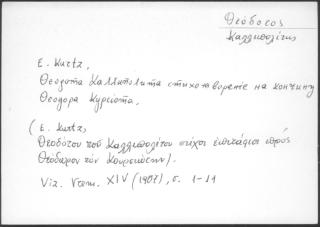 Θεόδοτος
Καλλιπολίτης
E. Kurtz,
Θеодота Каллиполита стихотворение на кончину
Θеодора Куркοта,
( E. Kurtz,
Θεοδότου τοῦ Καλλιπολίτου στίχοι ἐπιτάφιοι πρὸς
Θεόδωρον τὸν
Viz. Vrem. XIV (1907), σ. 1-11